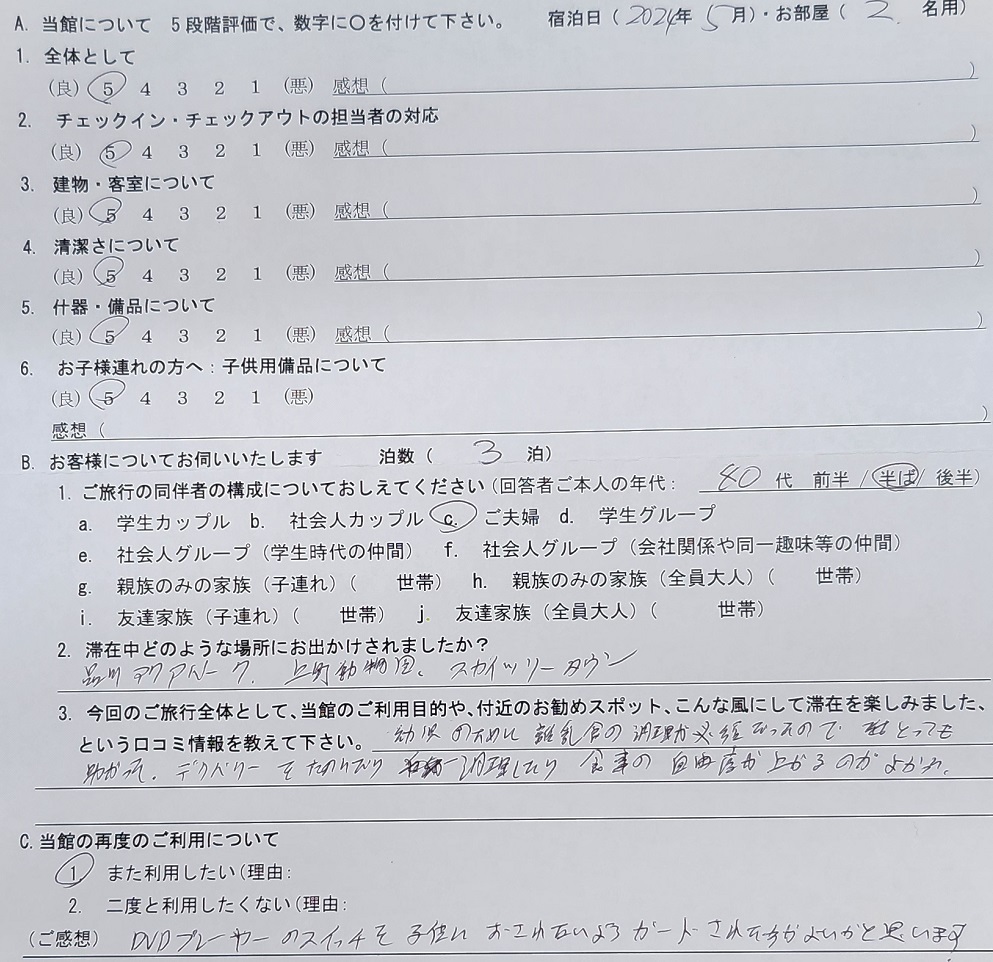 A. 当館について 5段階評価で、数字に〇を付けて下さい。 宿泊日（2024年 5月）・お部屋（2 名用）
1. 全体として
(良) 5 4 3 2 1 (悪) 感想（ ）
2. チェックイン・チェックアウトの担当者の対応
(良) 5 4 3 2 1 (悪) 感想（ ）
3. 建物・客室について
(良) 5 4 3 2 1 (悪) 感想（ ）
4. 清潔さについて
(良) 5 4 3 2 1 (悪) 感想（ ）
5. 什器・備品について
(良) 5 4 3 2 1 (悪) 感想（ ）
6. お子様連れの方へ：子供用備品について
(良) 5 4 3 2 1 (悪)
感想（ ）
B. お客様についてお伺いいたします 泊数（ 3 泊）
1. ご旅行の同伴者の構成についておしえてください(回答者ご本人の年代： 代 前半 / 半ば / 後半)
a. 学生カップル b. 社会人カップル c. ご夫婦 d. 学生グループ
e. 社会人グループ（学生時代の仲間） f. 社会人グループ（会社関係や同一趣味等の仲間）
g. 親族のみの家族（子連れ）（ 世帯） h. 親族のみの家族（全員大人）（ 世帯）
i. 友達家族（子連れ）（ 世帯） j. 友達家族（全員大人）（ 世帯）
2. 滞在中どのような場所にお出かけされましたか？
品川アクアパーク、上野動物園、スカイツリータウン
3. 今回のご旅行全体として、当館のご利用目的や、付近のお勧めスポット、こんな風にして滞在を楽しみました、
という口コミ情報を教えて下さい。幼児のために 離乳食の調理が必 だったので とっても
助かった。デリバリーをたのんだり 調理したり 食事の自由度が上がるのがよかった。
C. 当館の再度のご利用について
1. また利用したい(理由：
2. 二度と利用したくない(理由：
(ご感想) DVDプレーヤーのスイッチを子供に おされないよう ガードされた方がよいかと思います